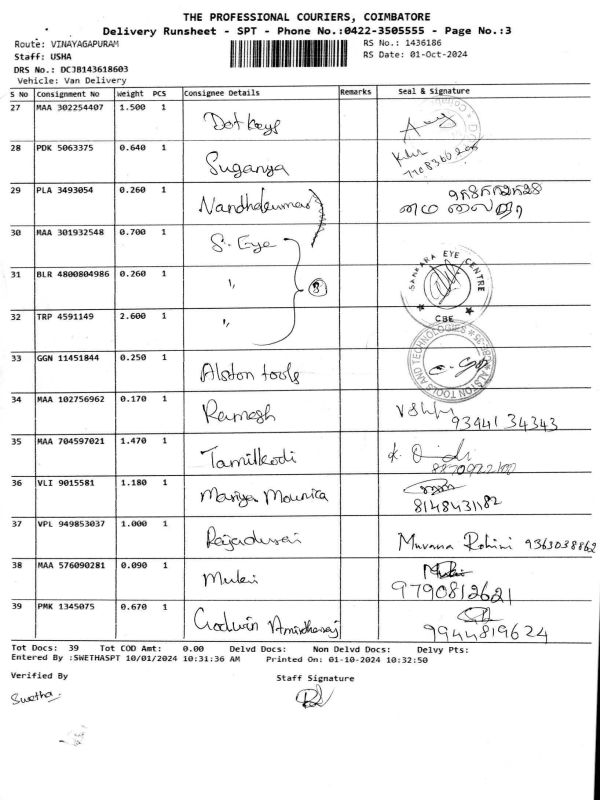 THE PROFESSIONAL COURIERS, COIMBATORE
Delivery Runsheet - SPT - Phone No.:0422-3505555 - Page No.:3
Route: VINAYAGAPURAM
RS No.: 1436186
Staff: USHA
RS Date: 01-Oct-2024
DRS No.: DCJB143618603
Vehicle: Van Delivery
S No Consignment No Weight PCS Consignee Details Remarks Seal & Signature
27 MAA 302254407 1.500 1 Dot keys
28 PDK 5063375 0.640 1 Suganya
29 PLA 3493054 0.260 1 Nandhakumar
30 MAA 301932548 0.700 1 S. Eye
31 BLR 4800804986 0.260 1 " 3 SANKARA EYE CENTRE
32 TRP 4591149 2.600 1 " CBE
33 GGN 11451844 0.250 1 Alston tools ALSTON TOOLS AND TECHNOLOGIES
34 MAA 102756962 0.170 1 Ramesh 93441 34343
35 MAA 704597021 1.470 1 Tamilkodi
36 VLI 9015581 1.180 1 Mariya Mounica 8148431182
37 VPL 949853037 1.000 1 Rajadurai Muvana Rohini 9363038862
38 MAA 576090281 0.090 1 Muki 9790812621
39 PMK 1345075 0.670 1 Godwin Amirtharaj 9944819624
Tot Docs: 39 Tot COD Amt: 0.00 Delvd Docs: Non Delvd Docs: Delvy Pts:
Entered By :SWETHASPT 10/01/2024 10:31:36 AM Printed On: 01-10-2024 10:32:50
Verified By Staff Signature
Swetha